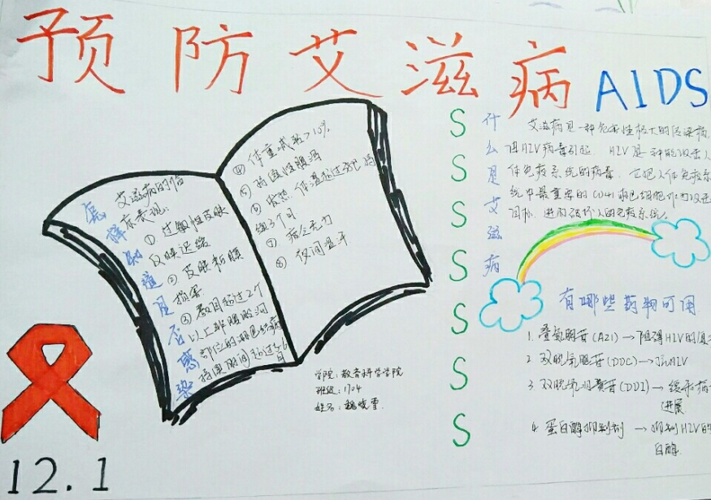 预防艾滋病 AIDS
怎样知道是否感染
艾滋病的临
床表现:
① 过敏性皮肤
反映迟缓
② 皮肤粘膜
损害
③ 数目超过2个
以上非腹股沟
部位的淋巴
④ 体重减轻>10%
⑤
⑥ 体温超过38℃
3个月
⑦ 疲乏无力
⑧ 夜间盗汗
学院:教育科学学院
班级:1704
姓名:
S
S
S
S
S
S
S
S
什么是艾滋病
艾滋病是一种危害性极大的传染病,
HIV病毒引起, HIV是一种能攻击人
体免疫系统的病毒. 它把人体免疫系
统中最重要的CD4T淋巴细胞作为攻击
目标,
有哪些药物可用
1. 叠氮胸苷(AZT)→阻碍HIV的
2. 双脱氧胞苷(DDC)→抗HIV
3. 双脱氧(DDI)→缓
进展
4. 蛋白酶抑制剂 → 抑制HIV的
白酶.
12.1